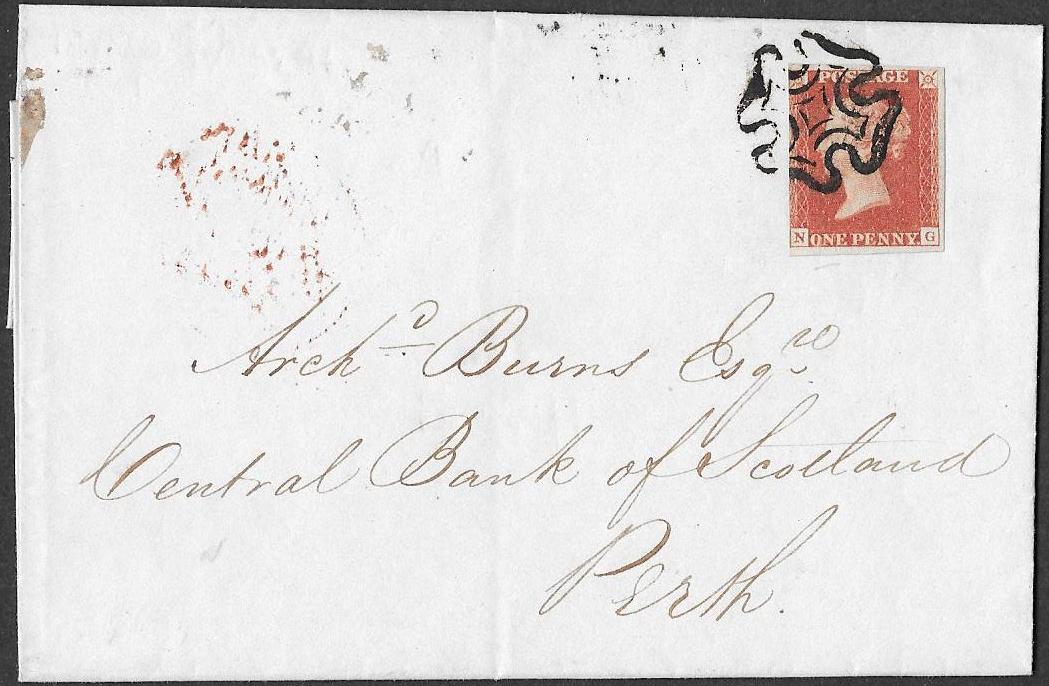 POSTAGE
N ONE PENNY G
Archd Burns Esqre
Central Bank of Scotland
Perth.